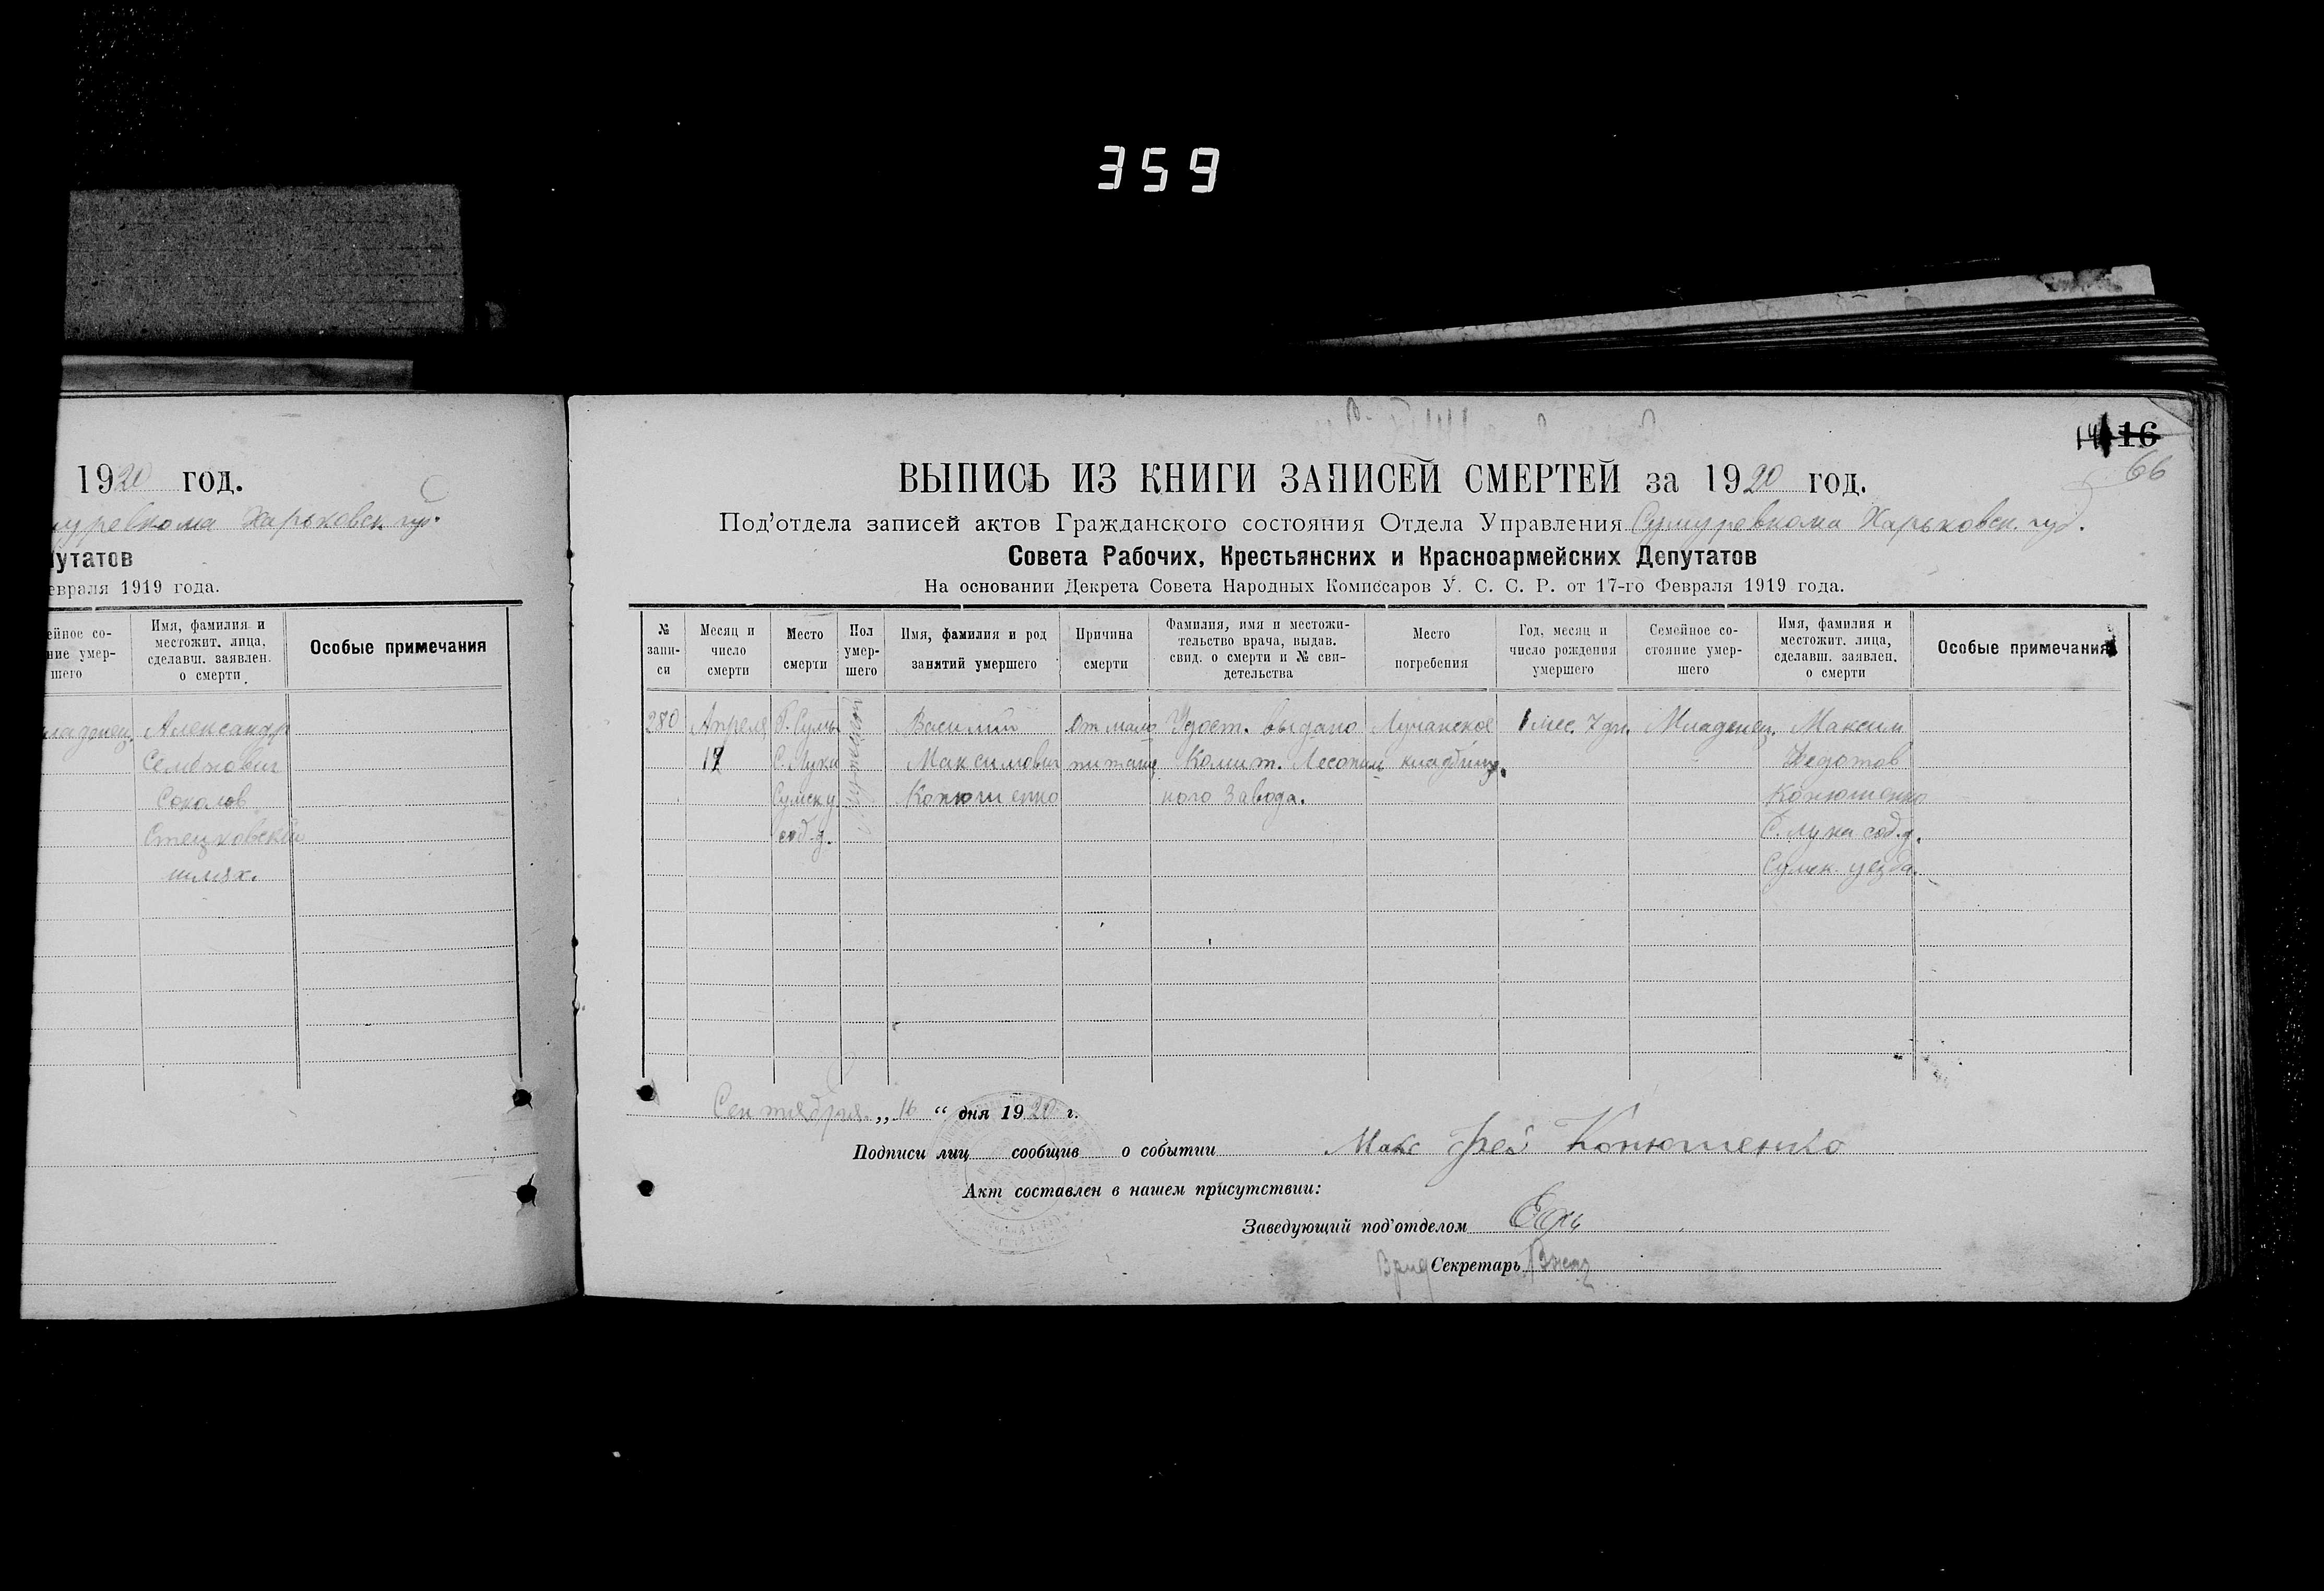 359
1920 год.
Харьковск. губ.
путатов
евраля 1919 года.
ейное со-
ние умер-
шего
Имя, фамилия и
местожит. лица,
сделавш. заявлен.
о смерти
Особые примечания
Александр
Семенович
Соколов
шлях.
16
66
ВЫПИСЬ ИЗ КНИГИ ЗАПИСЕЙ СМЕРТЕЙ за 1920 год.
Под’отдела записей актов Гражданского состояния Отдела Управления Сумуревкома Харьковск. губ.
Совета Рабочих, Крестьянских и Красноармейских Депутатов
На основании Декрета Совета Народных Комиссаров У. С. С. Р. от 17-го Февраля 1919 года.
№
запи-
си
Месяц и
число
смерти
Место
смерти
Пол
умер-
шего
Имя, фамилия и род
занятий умершего
Причина
смерти
Фамилия, имя и местожи-
тельство врача, выдав.
свид. о смерти и № сви-
детельства
Место
погребения
Год, месяц и
число рождения
умершего
Семейное со-
стояние умер-
шего
Имя, фамилия и
местожит. лица,
сделавш. заявлен.
о смерти
Особые примечания
280
Апреля
17
Г. Сумы
С. Лука
Сумск у
Василий
Максимович
Конюшенко
От мало
питания
Удост. выдано
Комит. Лесопиль
ного Завода.
Лучанское
кладбище.
1 мес. 7 дн.
Младенец.
Максим
Федотов
Конюшенко
С. Лука
Сумск. уезда.
Сентября „ 16 “ дня 1920 г.
Подписи лиц сообщив о событии Макс Фед Конюшенко
Акт составлен в нашем присутствии:
Заведующий под’отделом
Врид Секретарь